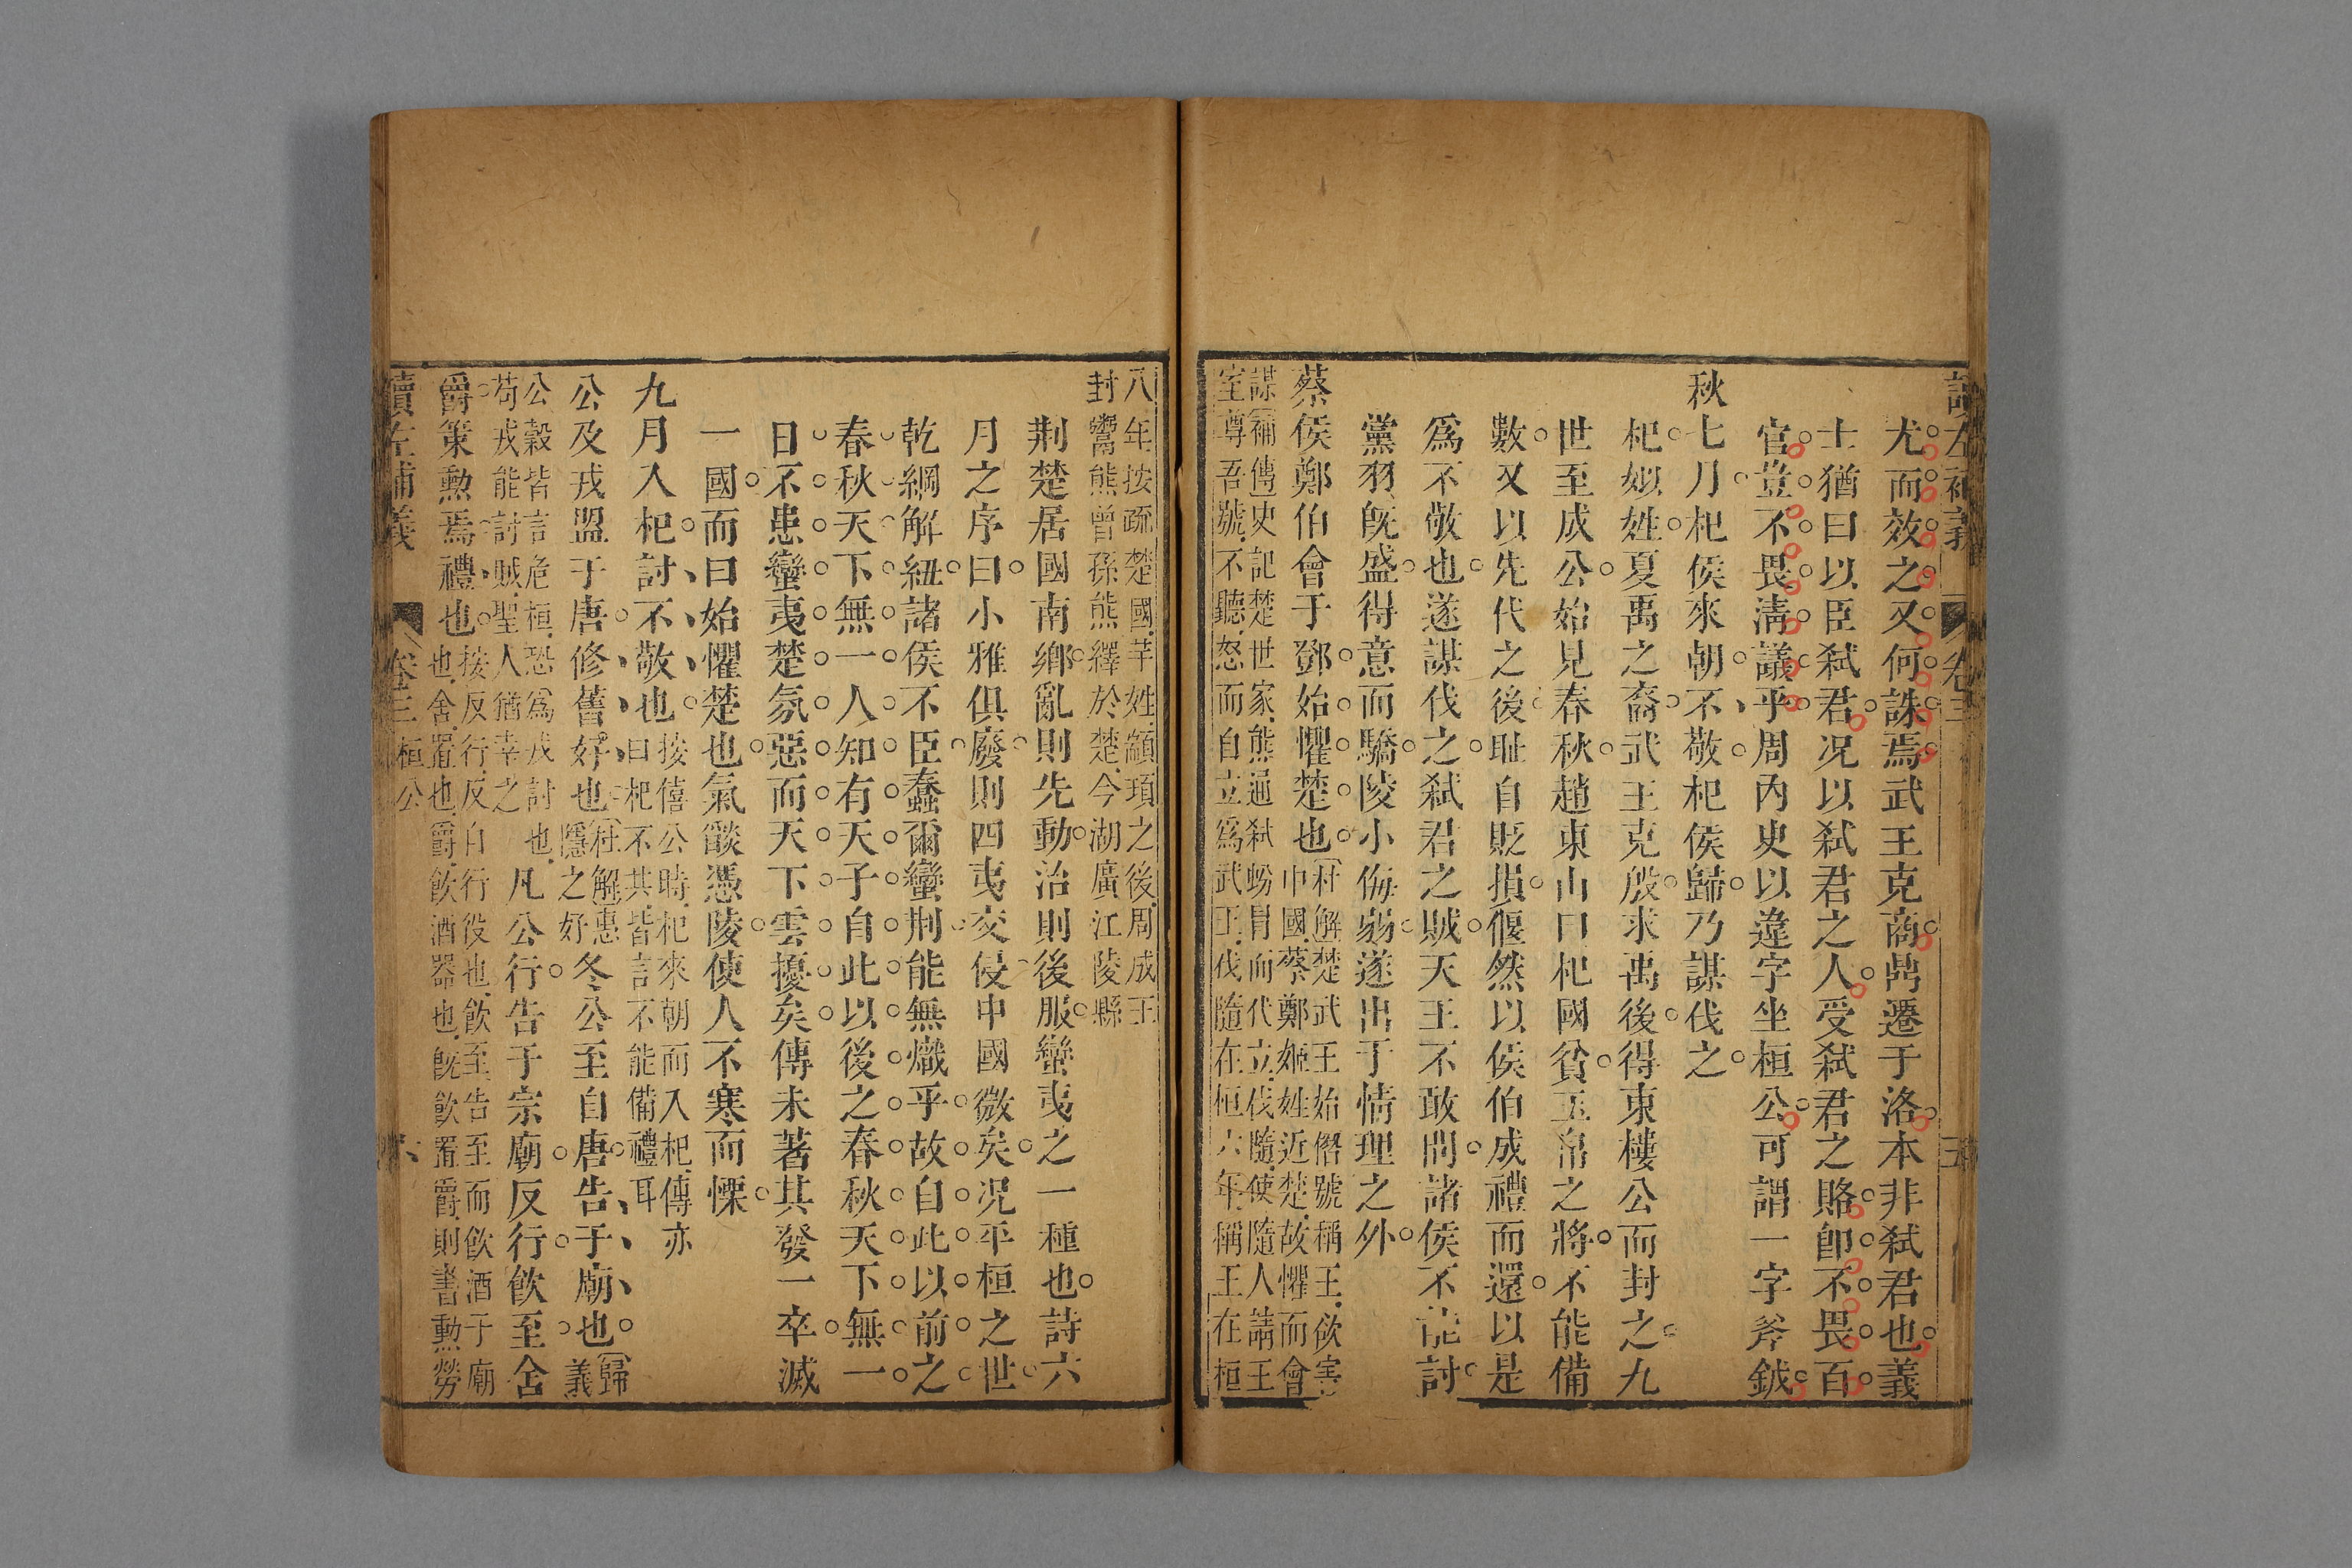 讀左補義 卷三 五
尤而效之又何誅焉武王克商鼎遷于洛本非弒君也義
士猶曰以臣弒君况以弒君之人受弒君之賂卽不畏百
官豈不畏淸議乎周內史以違字坐桓公可謂一字斧鉞
秋七月杞侯來朝不敬杞侯歸乃謀伐之
杞姒姓夏禹之裔武王克殷求禹後得東樓公而封之九
世至成公始見春秋趙東山曰杞國貧玉帛之將不能備
數又以先代之後耻自貶損偃然以侯伯成禮而還以是
爲不敬也遂謀伐之弒君之賊天王不敢問諸侯不能討
黨羽旣盛得意而驕陵小侮弱遂出于情理之外
蔡侯鄭伯會于鄧始懼楚也
杜解楚武王始僭號稱王欲害
中國蔡鄭姬姓近楚故懼而會
謀補傳史記楚世家熊通弒蚡冒而代立伐隨使隨人請王
室尊吾號不聽怒而自立爲武王伐隨在桓六年稱王在桓
八年按疏楚國芊姓顓頊之後周成王
封鬻熊曾孫熊繹於楚今湖廣江陵縣
荆楚居國南鄉亂則先動治則後服蠻夷之一種也詩六
月之序曰小雅俱廢則四夷交侵中國微矣况平桓之世
乾綱解紐諸侯不臣蠢爾蠻荆能無熾乎故自此以前之
春秋天下無一人知有天子自此以後之春秋天下無一
日不患蠻夷楚氛惡而天下雲擾矣傳未著其發一卒滅
一國而曰始懼楚也氣燄憑陵使人不寒而慄
九月入杞討不敬也
按僖公時杞來朝而入杞傳亦
曰杞不共皆言不能備禮耳
公及戎盟于唐修舊好也
杜解惠
隱之好
冬公至自唐告于廟也
歸
義
公穀皆言危桓恐爲戎討也
苟戎能討賊聖人猶幸之
凡公行告于宗廟反行飮至舍
爵策勳焉禮也
按反行反自行役也飮至告至而飮酒于廟
也舍置也爵飮酒器也旣飮置爵則書勳勞
讀左補義 卷三 桓公 六